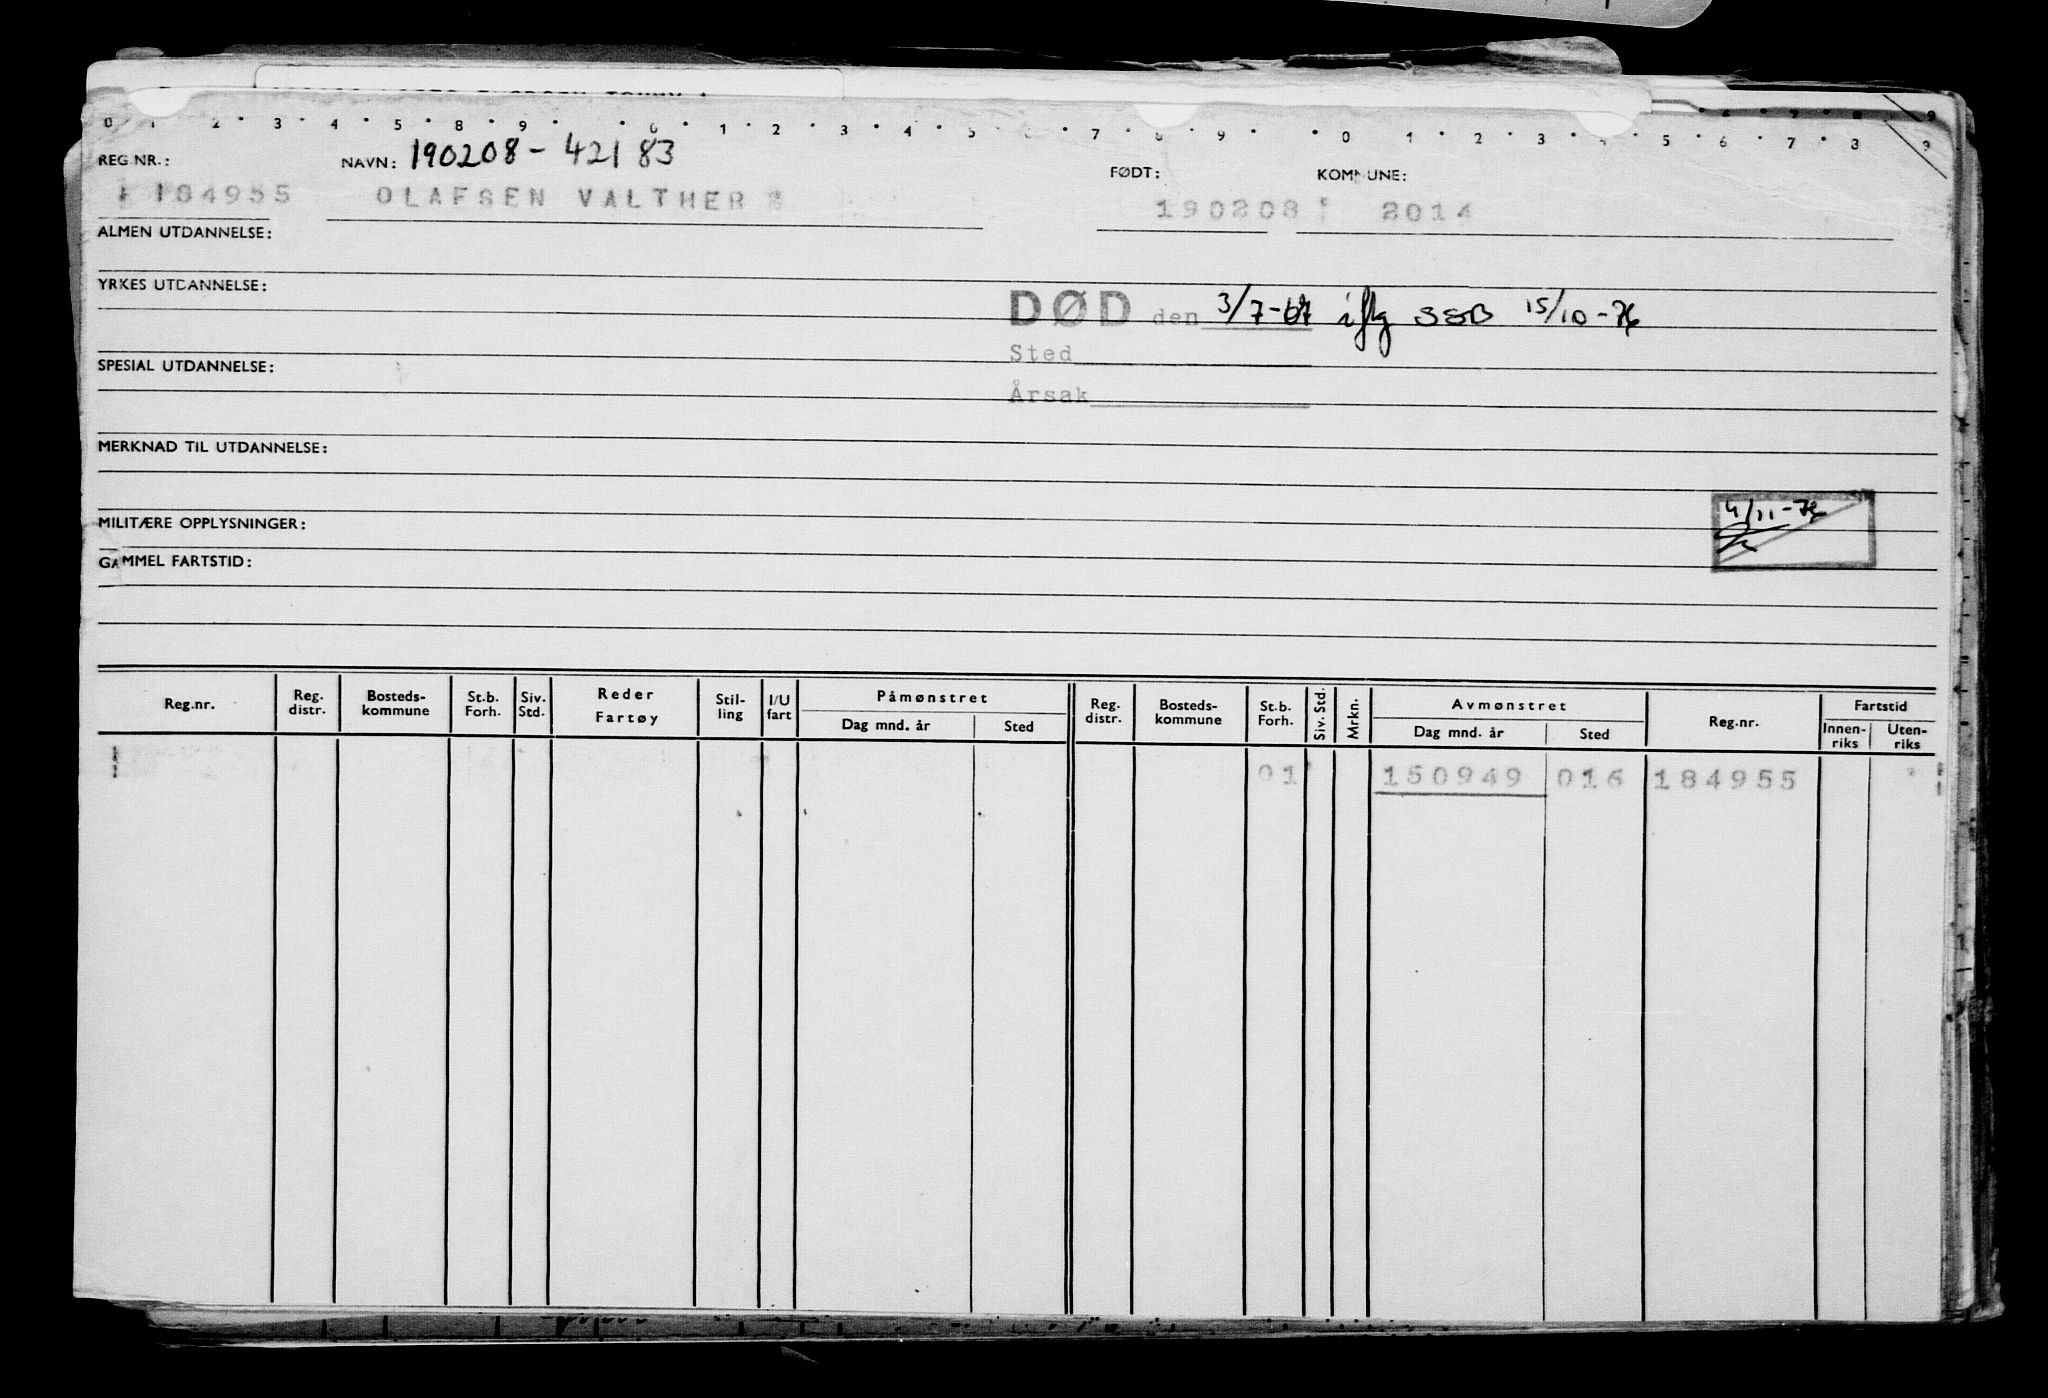 0 1 2 3 4 5 8 9 0 1 2 3 4 5 7 8 9 0 1 2 3 4 5 6 7 8 9
REG.NR.: NAVN: 190208-42183 FØDT: KOMMUNE:
184955 OLAFSEN VALTHER 190208 2014
ALMEN UTDANNELSE:
YRKES UTDANNELSE:
DØD den 3/7-67 iflg SSB 15/10-76
Sted
SPESIAL UTDANNELSE:
Årsak
MERKNAD TIL UTDANNELSE:
4/11-76
MILITÆRE OPPLYSNINGER:
GAMMEL FARTSTID:
Reg.nr. Reg. distr. Bosteds-kommune St.b. Forh. Siv. Std. Reder Fartøy Stil-ling I/U fart Påmønstret Dag mnd. år Sted Reg. distr. Bosteds-kommune St.b. Forh. Siv. Std. Mrkn. Avmønstret Dag mnd. år Sted Reg.nr. Fartstid Innen-riks Uten-riks
01 150949 016 184955